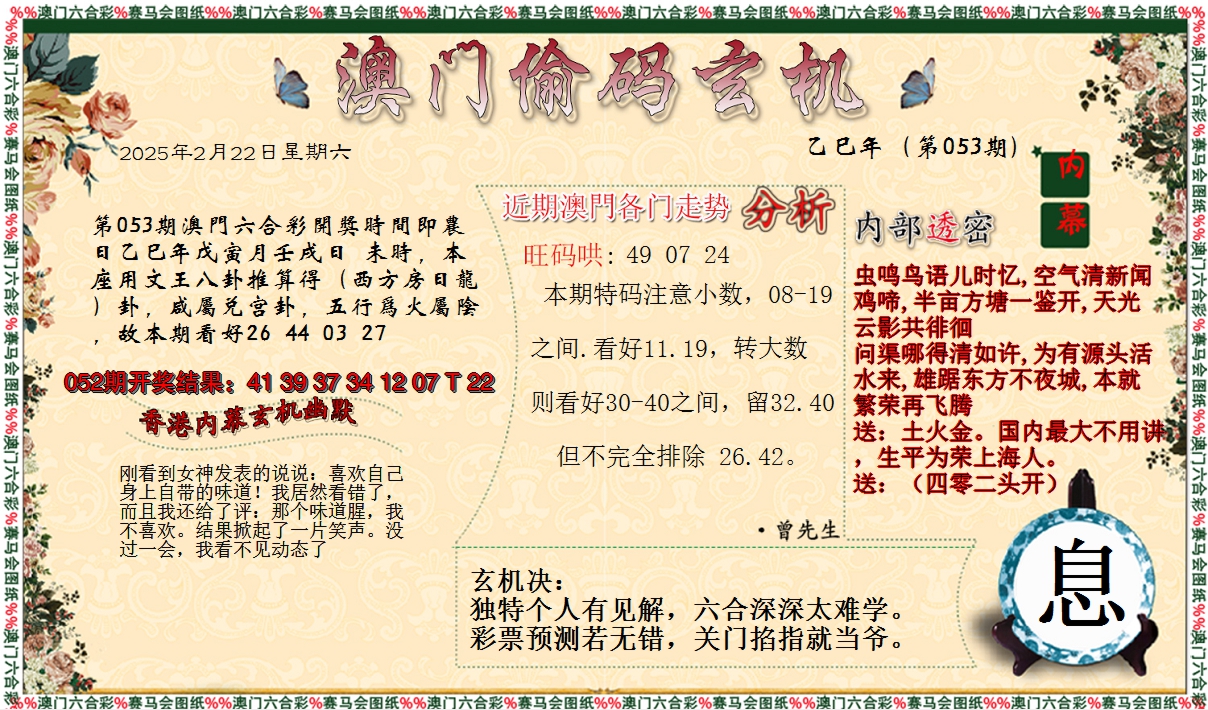 %%澳门六合彩%赛马会图纸%%澳门六合彩%赛马会图纸%%澳门六合彩%赛马会图纸%%澳门六合彩%赛马会图纸%%澳门六合彩%赛马会图纸%%澳门六合彩%赛马会图纸%%
澳门偷码玄机
2025年2月22日星期六
乙巳年（第053期）
内
幕
第053期澳門六合彩開獎時間即農
日乙巳年戊寅月壬戌日 未時，本
座用文王八卦推算得（西方房日龍
）卦，咸屬兑宫卦，五行爲火屬陰
，故本期看好26 44 03 27
052期开奖结果：41 39 37 34 12 07 T 22
香港内幕玄机幽默
刚看到女神发表的说说：喜欢自己
身上自带的味道！我居然看错了，
而且我还给了评：那个味道腥，我
不喜欢。结果掀起了一片笑声。没
过一会，我看不见动态了
近期澳門各门走势 分析
旺码哄: 49 07 24
本期特码注意小数，08-19
之间.看好11.19，转大数
则看好30-40之间，留32.40
但不完全排除 26.42。
·曾先生
内部透密
虫鸣鸟语儿时忆,空气清新闻
鸡啼,半亩方塘一鉴开,天光
云影共徘徊
问渠哪得清如许,为有源头活
水来,雄踞东方不夜城,本就
繁荣再飞腾
送：土火金。国内最大不用讲
，生平为荣上海人。
送：（四零二头开）
玄机决：
独特个人有见解，六合深深太难学。
彩票预测若无错，关门掐指就当爷。
息
%%澳门六合彩%赛马会图纸%%澳门六合彩%赛马会图纸%%澳门六合彩%赛马会图纸%%澳门六合彩%赛马会图纸%%澳门六合彩%赛马会图纸%%澳门六合彩%赛马会图纸%%